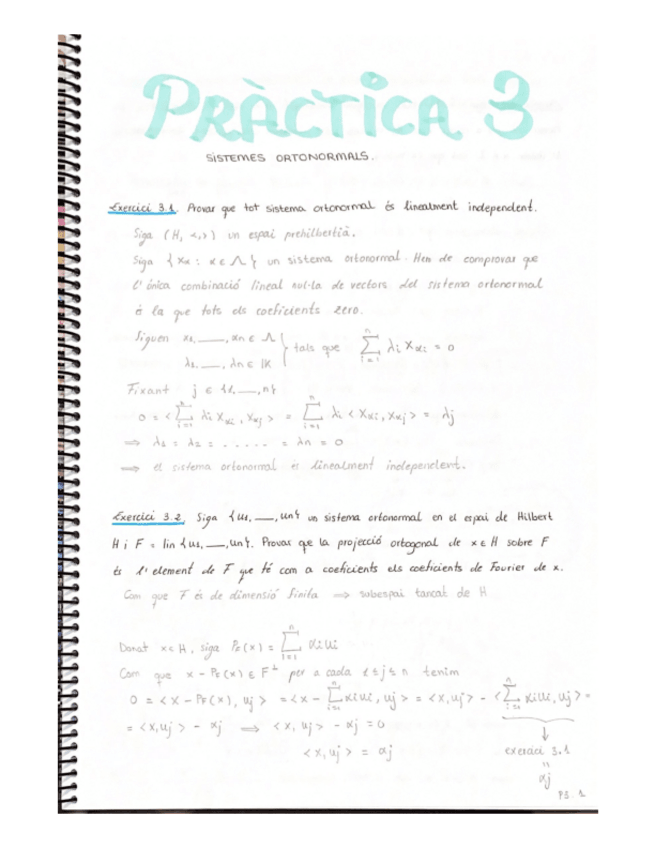 PRÀCTICA 3
SISTEMES ORTONORMALS.
Exercici 3.1. Provar que tot sistema ortonormal és linealment independent.
Siga (H, <,>) un espai prehilbertià.
Siga {xα : α ∈ Λ} un sistema ortonormal. Hem de comprovar que
l'única combinació lineal nul·la de vectors del sistema ortonormal
é la que tots els coeficients zero.
Siguen α1, __, αn ∈ Λ } tals que ∑_{i=1}^{n} λi xαi = 0
λ1, __, λn ∈ K
Fixant j ∈ {1, __, n}
0 = <∑_{i=1}^{n} λi xαi, xαj> = ∑_{i=1}^{n} λi <xαi, xαj> = λj
⟹ λ1 = λ2 = ..... = λn = 0
⟹ el sistema ortonormal és linealment independent.
Exercici 3.2. Siga {u1, __, un} un sistema ortonormal en el espai de Hilbert
H i F = lin {u1, __, un}. Provar que la projecció ortogonal de x ∈ H sobre F
és l'element de F que té com a coeficients els coeficients de Fourier de x.
Com que F és de dimensió finita ⟹ subespai tancat de H
Donat x ∈ H, siga PF(x) = ∑_{i=1}^{n} αi ui
Com que x - PF(x) ∈ F⊥ per a cada 1 ≤ j ≤ n tenim
0 = <x - PF(x), uj> = <x - ∑_{i=1}^{n} αi ui, uj> = <x, uj> - <∑_{i=1}^{n} αi ui, uj> =
= <x, uj> - αj ⟹ <x, uj> - αj = 0
<x, uj> = αj
↓
exercici 3.1
"
αj
PJ. 1